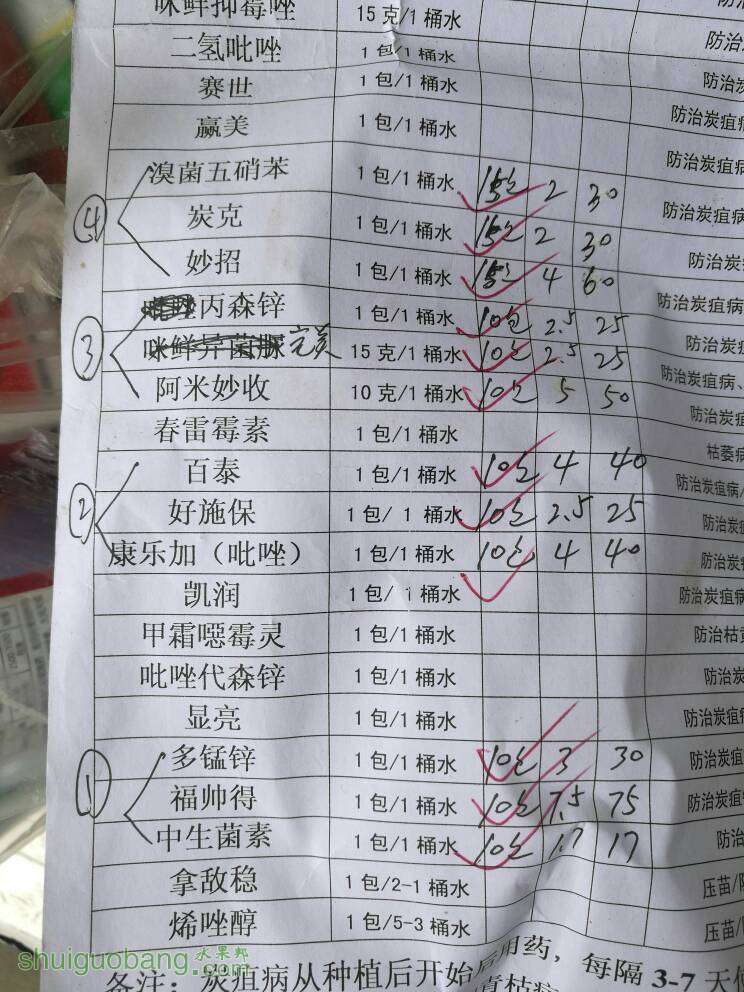 咪鲜抑霉唑 15克/1桶水
二氢吡唑 1包/1桶水 防治
赛世 1包/1桶水 防治炭
赢美 1包/1桶水 防治炭疽
溴菌五硝苯 1包/1桶水 15包 2 30 防治炭疽病
④ 炭克 1包/1桶水 15包 2 30 防治炭疽病
妙招 1包/1桶水 15包 4 60 防治炭疽
丙森锌 1包/1桶水 10包 2.5 25 防治炭疽病
③ 咪鲜异菌脲 完美 15克/1桶水 10包 2.5 25 防治炭疽
阿米妙收 10克/1桶水 10包 5 50 防治炭疽病、
春雷霉素 1包/1桶水 防治炭疽
枯萎病
百泰 1包/1桶水 10包 4 40 防治炭疽病/
② 好施保 1包/1桶水 10包 2.5 25 防治炭疽
康乐加（吡唑） 1包/1桶水 10包 4 40 防治炭疽
凯润 1包/1桶水 防治炭疽病
甲霜噁霉灵 1包/1桶水 防治枯
吡唑代森锌 1包/1桶水 防治炭
显亮 1包/1桶水 防治炭疽
① 多锰锌 1包/1桶水 10包 3 30 防治炭疽
福帅得 1包/1桶水 10包 7.5 75 防治炭疽
中生菌素 1包/1桶水 10包 1.7 17 防治
拿敌稳 1包/2-1桶水 压苗/
烯唑醇 1包/5-3桶水 压苗/
备注：炭疽病从种植后开始后用药，每隔3-7天
青枯病
shuiguobang.com 水果邦